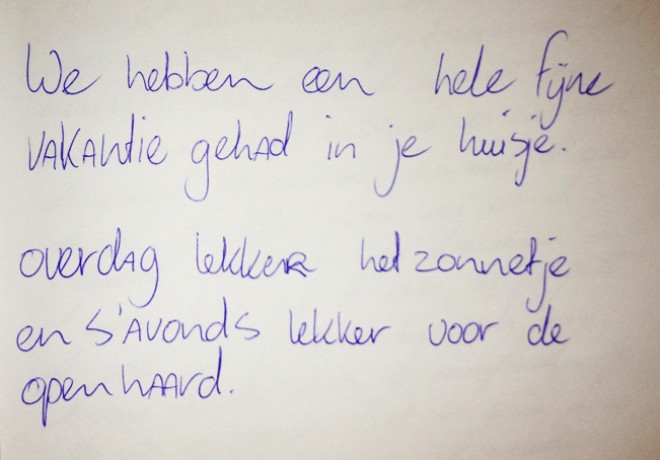 We hebben een hele fijne
vakantie gehad in je huisje.
overdag lekker het zonnetje
en s'avonds lekker voor de
open haard.